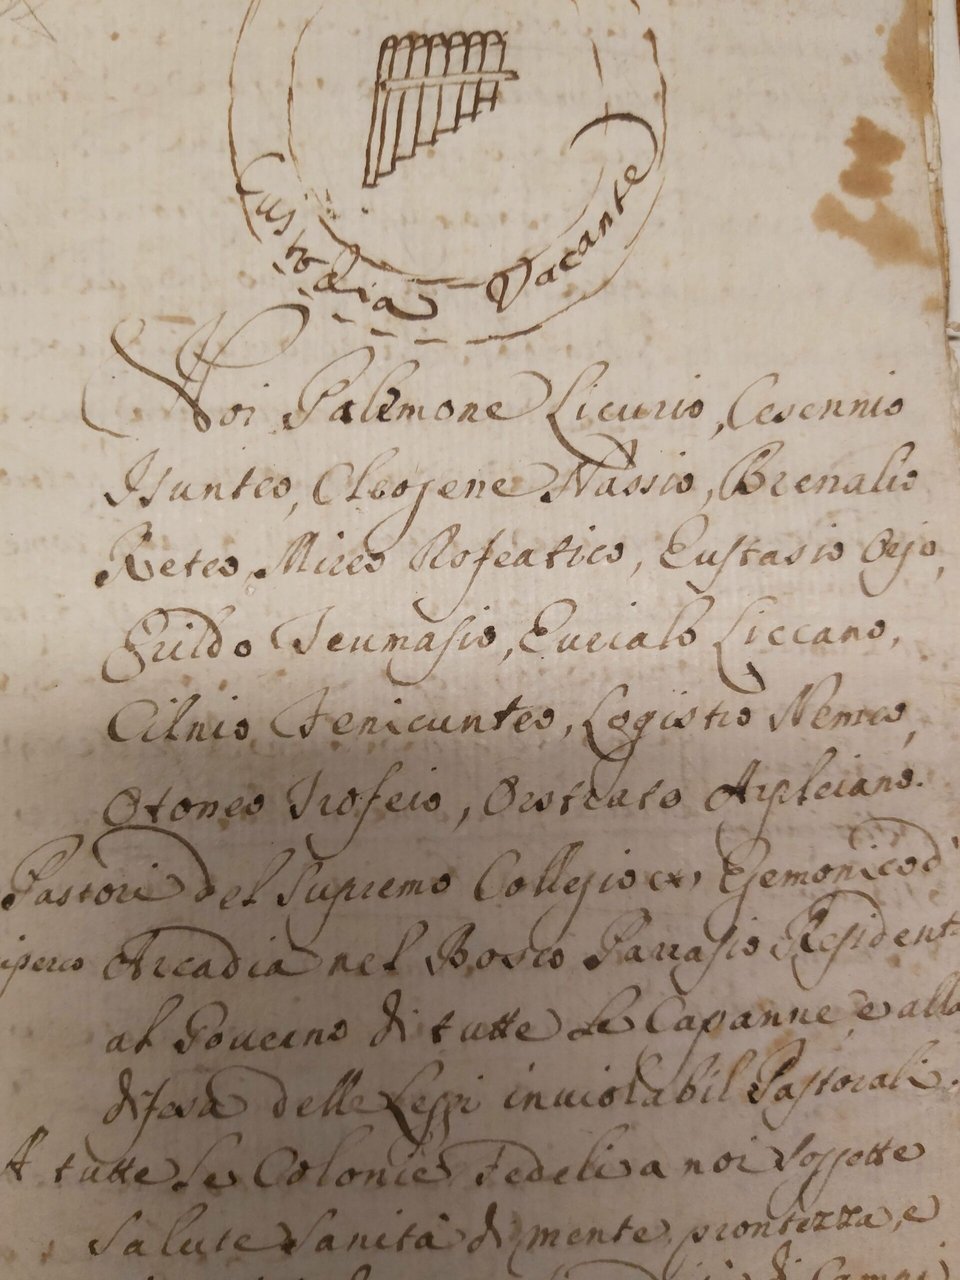 Custodia Vacante
Noi Palemone Licurio, Cesennio
Isunteo, Cleogene Nassio, Brenalio
Reteo, Mireo Rofeatico, Eustasio Oejo,
Erildo Teumasio, Eurialo Liccano,
Cilnio Fenicunteo, Logisto Nemeo,
Otoneo Trofeio, Orotrato
Pastori del Supremo Collegio Egemonico d'
Arcadia nel Bosco Parrasio Resident
al Gouerno di tutte le Capanne, e alla
difesa delle Leggi inuiolabil Pastorali.
A tutte le Colonie Fedeli a noi soggette
salute sanità di mente, prontezza, e
di Campi